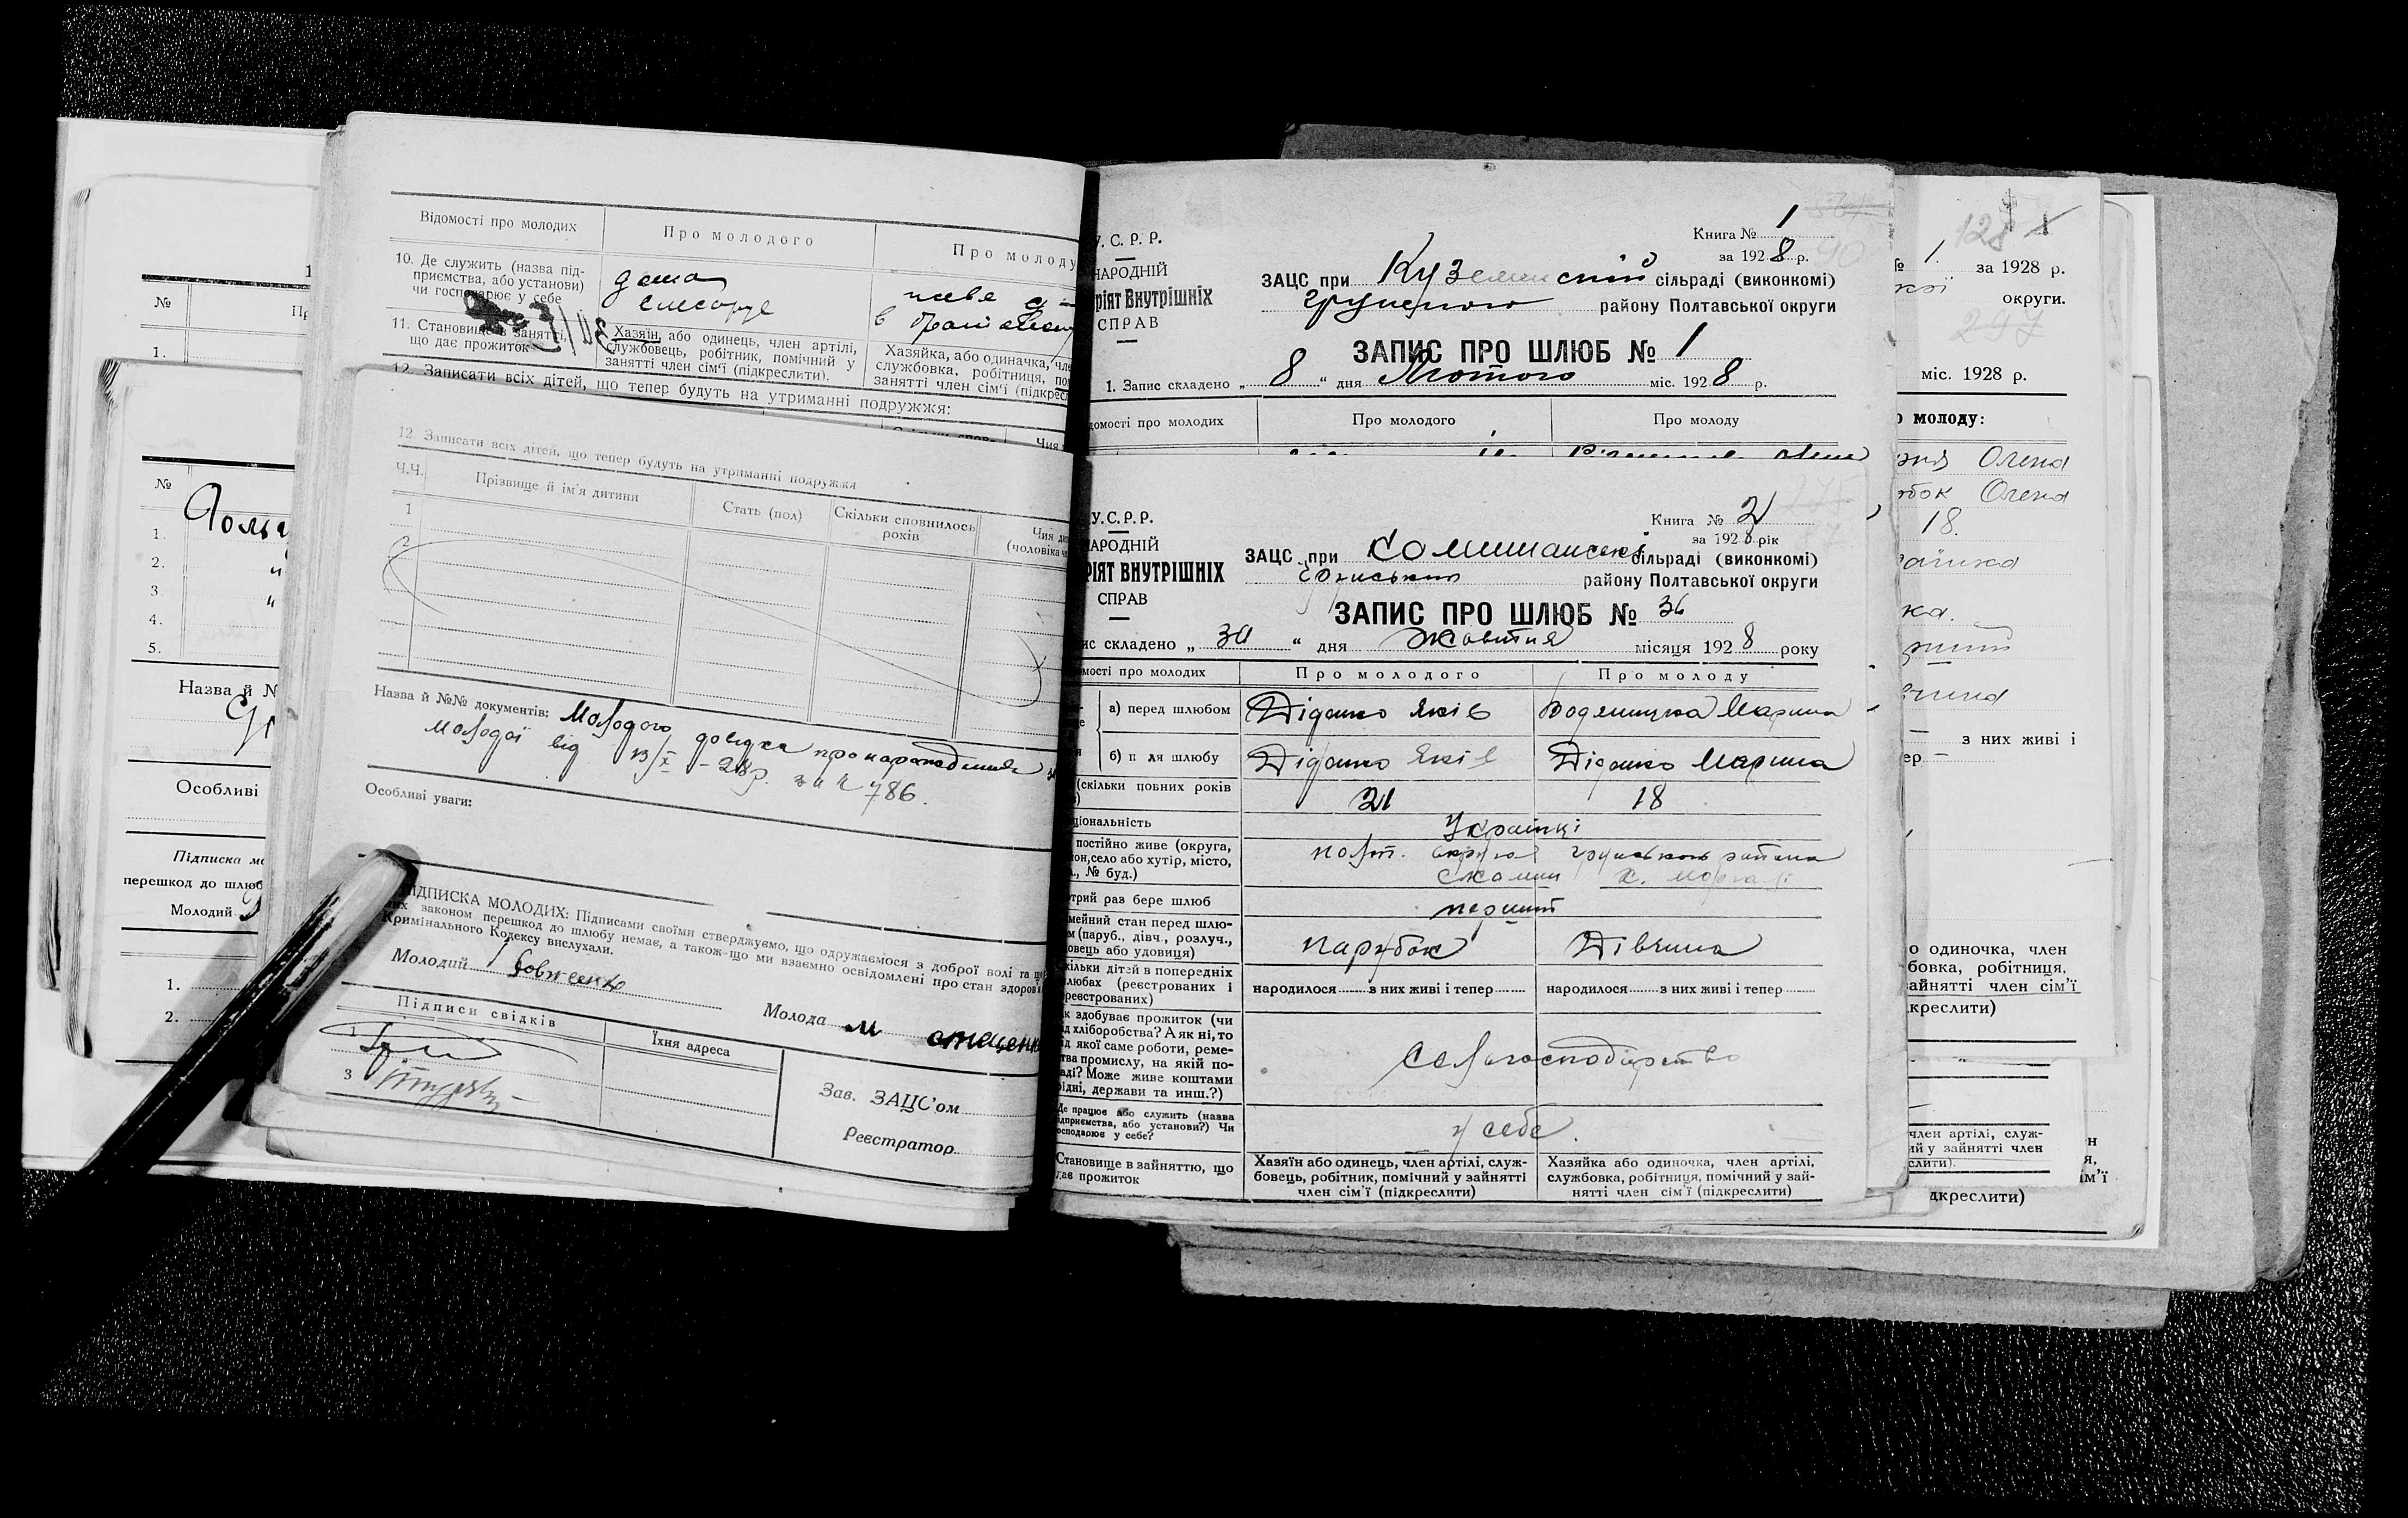 Відомості про молодих
Про молодого
Про молоду
10. Де служить (назва під-
приємства, або установи)
чи господарює у себе
дома
11. Становище в занятті,
що дає прожиток
Хазяїн, або одинець, член артілі,
службовець, робітник, помічний у
занятті член сім'ї (підкреслити).
Хазяйка, або одиначка, чле
службовка, робітниця, по
занятті член сім'ї (підкресл
12. Записати всіх дітей, що тепер будуть на утриманні подружжя:
12. Записати всіх дітей, що тепер будуть на утриманні подружжя
Ч.Ч.
Прізвище й ім'я дитини
Стать (пол)
Скільки сповнилось
років
Чия ди
(чоловіка чи
1
2
Назва й №№ документів: Молодого довідка про народження
Молодої від 13/X – 28 р. за № 786.
Особливі уваги:
ПІДПИСКА МОЛОДИХ: Підписами своїми стверджуємо, що одружаємося з доброї волі та що
них законом перешкод до шлюбу немає, а також що ми взаємно освідомлені про стан здоров'я
Кримінального Кодексу вислухали.
Молодий
Молода М
Підписи свідків
Їхня адреса
1
3
Зав. ЗАЦС'ом
Реєстратор
№
1.
№
1.
2. "
3 "
4.
5.
Назва й №
Особливі
Підписка мо
перешкод до шлюб
Молодий
1.
2.
У.С.Р.Р.
НАРОДНІЙ
РІЯТ ВНУТРІШНІХ
СПРАВ
Книга № 1
за 1928 р.
90
ЗАЦС при Куземинскій сільраді (виконкомі)
району Полтавської округи
ЗАПИС ПРО ШЛЮБ № 1
1. Запис складено „ 8 “ дня Лютого міс. 1928 р.
домості про молодих
Про молодого
Про молоду
У.С.Р.Р.
НАРОДНІЙ
РІЯТ ВНУТРІШНІХ
СПРАВ
275
Книга № 2
за 1928 рік
ЗАЦС при сільраді (виконкомі)
району Полтавської округи
ЗАПИС ПРО ШЛЮБ № 36
ис складено „ 30 “ дня жовтня місяця 1928 року
мості про молодих
Про молодого
Про молоду
а) перед шлюбом
Дідочко Яків
Марина
б) п ля шлюбу
Дідочко Яків
Дідочко Марина
(скільки повних років
21
18
ціональність
Українці
постійно живе (округа,
йон, село або хутір, місто,
., № буд.)
Полт. округа Груньського района
отрий раз бере шлюб
перший
мейний стан перед шлю-
м (паруб., дівч., розлуч.,
овець або удовиця)
парубок
Дівчина
кільки дітей в попередніх
любах (реєстрованих і
реєстрованих)
народилося з них живі і тепер
народилося з них живі і тепер
к здобуває прожиток (чи
ід хліборобства? А як ні, то
ід якої саме роботи, реме-
тва промислу, на якій по-
аді? Може живе коштами
рідні, держави та инш.?)
Сельгосподарство
Де працює або служить (назва
ідприємства, або установи?) Чи
осподарює у себе?
у себе.
Становище в зайняттю, що
дає прожиток
Хазяїн або одинець, член артілі, служ-
бовець, робітник, помічний у зайнятті
член сім'ї (підкреслити)
Хазяйка або одиночка, член артілі,
службовка, робітниця, помічний у зай-
нятті член сім'ї (підкреслити)
128
№ 1 за 1928 р.
округи.
297
міс. 1928 р.
о молоду:
Олена
Олена
18.
з них живі і
ер
о одиночка, член
бовка, робітниця,
зайнятті член сім'ї
креслити)
член артілі, служ-
ий у зайнятті член
слити).
н
я,
ім'ї
дкреслити)